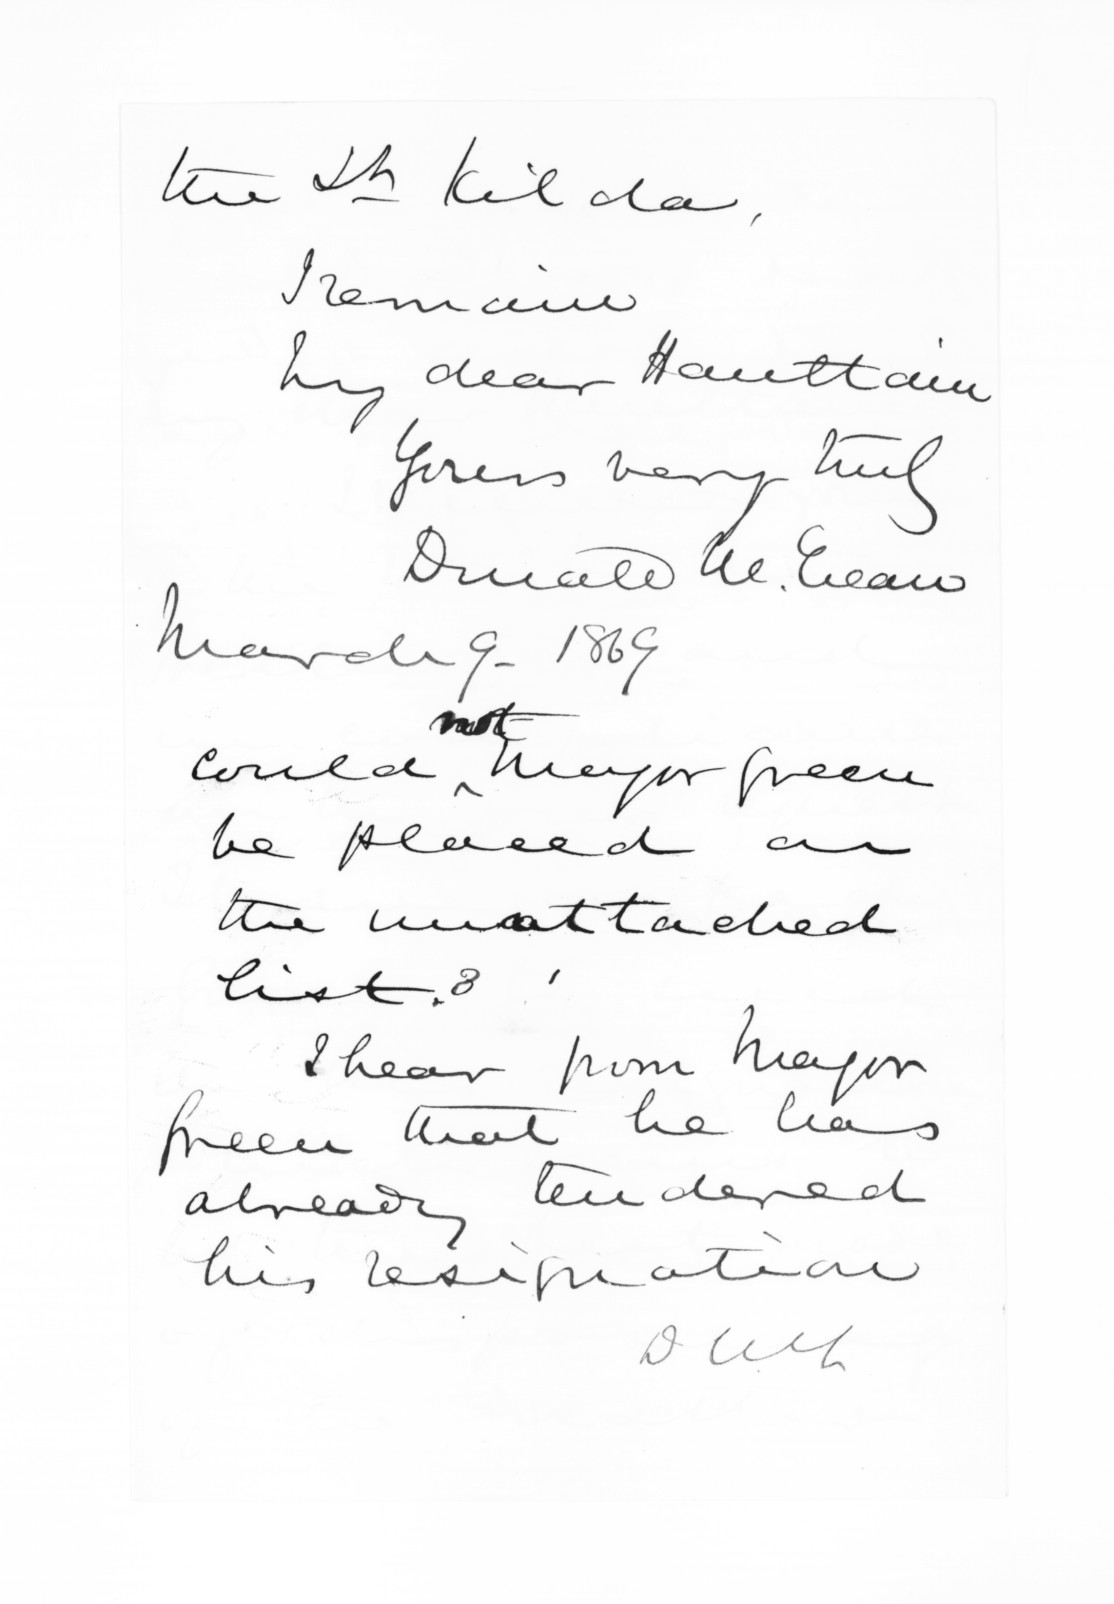 the St Kilda,
I remain
My dear Haultain
Yours very truly
Donald McLean
March 9 - 1869
could not Mayor Green
be placed on
the unattached
list.?
I hear from Mayor
Green that he has
already tendered
his resignation
D McL